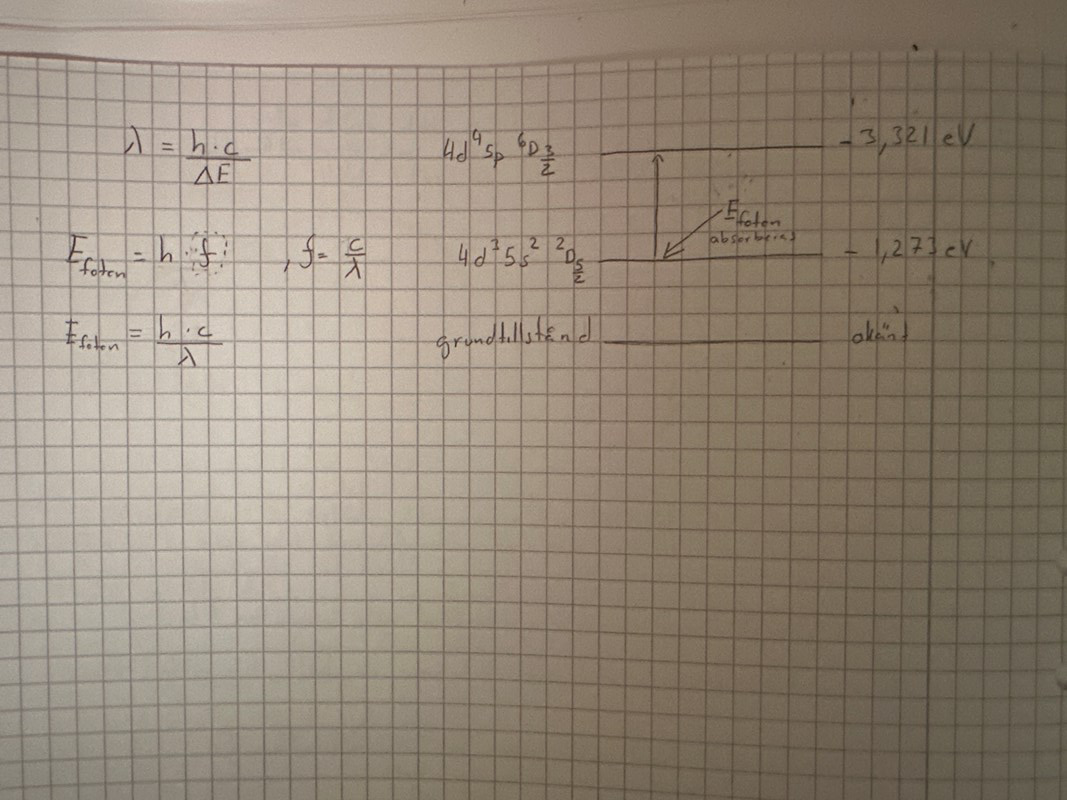 λ = h · c / ΔE
4d⁴5p ⁶D 3/2 - 3,321 eV
E foton = h · f , f = c / λ
E foton absorberas
4d³5s² ²D 5/2 - 1,273 eV
E foton = h · c / λ
grundtillstånd okänt